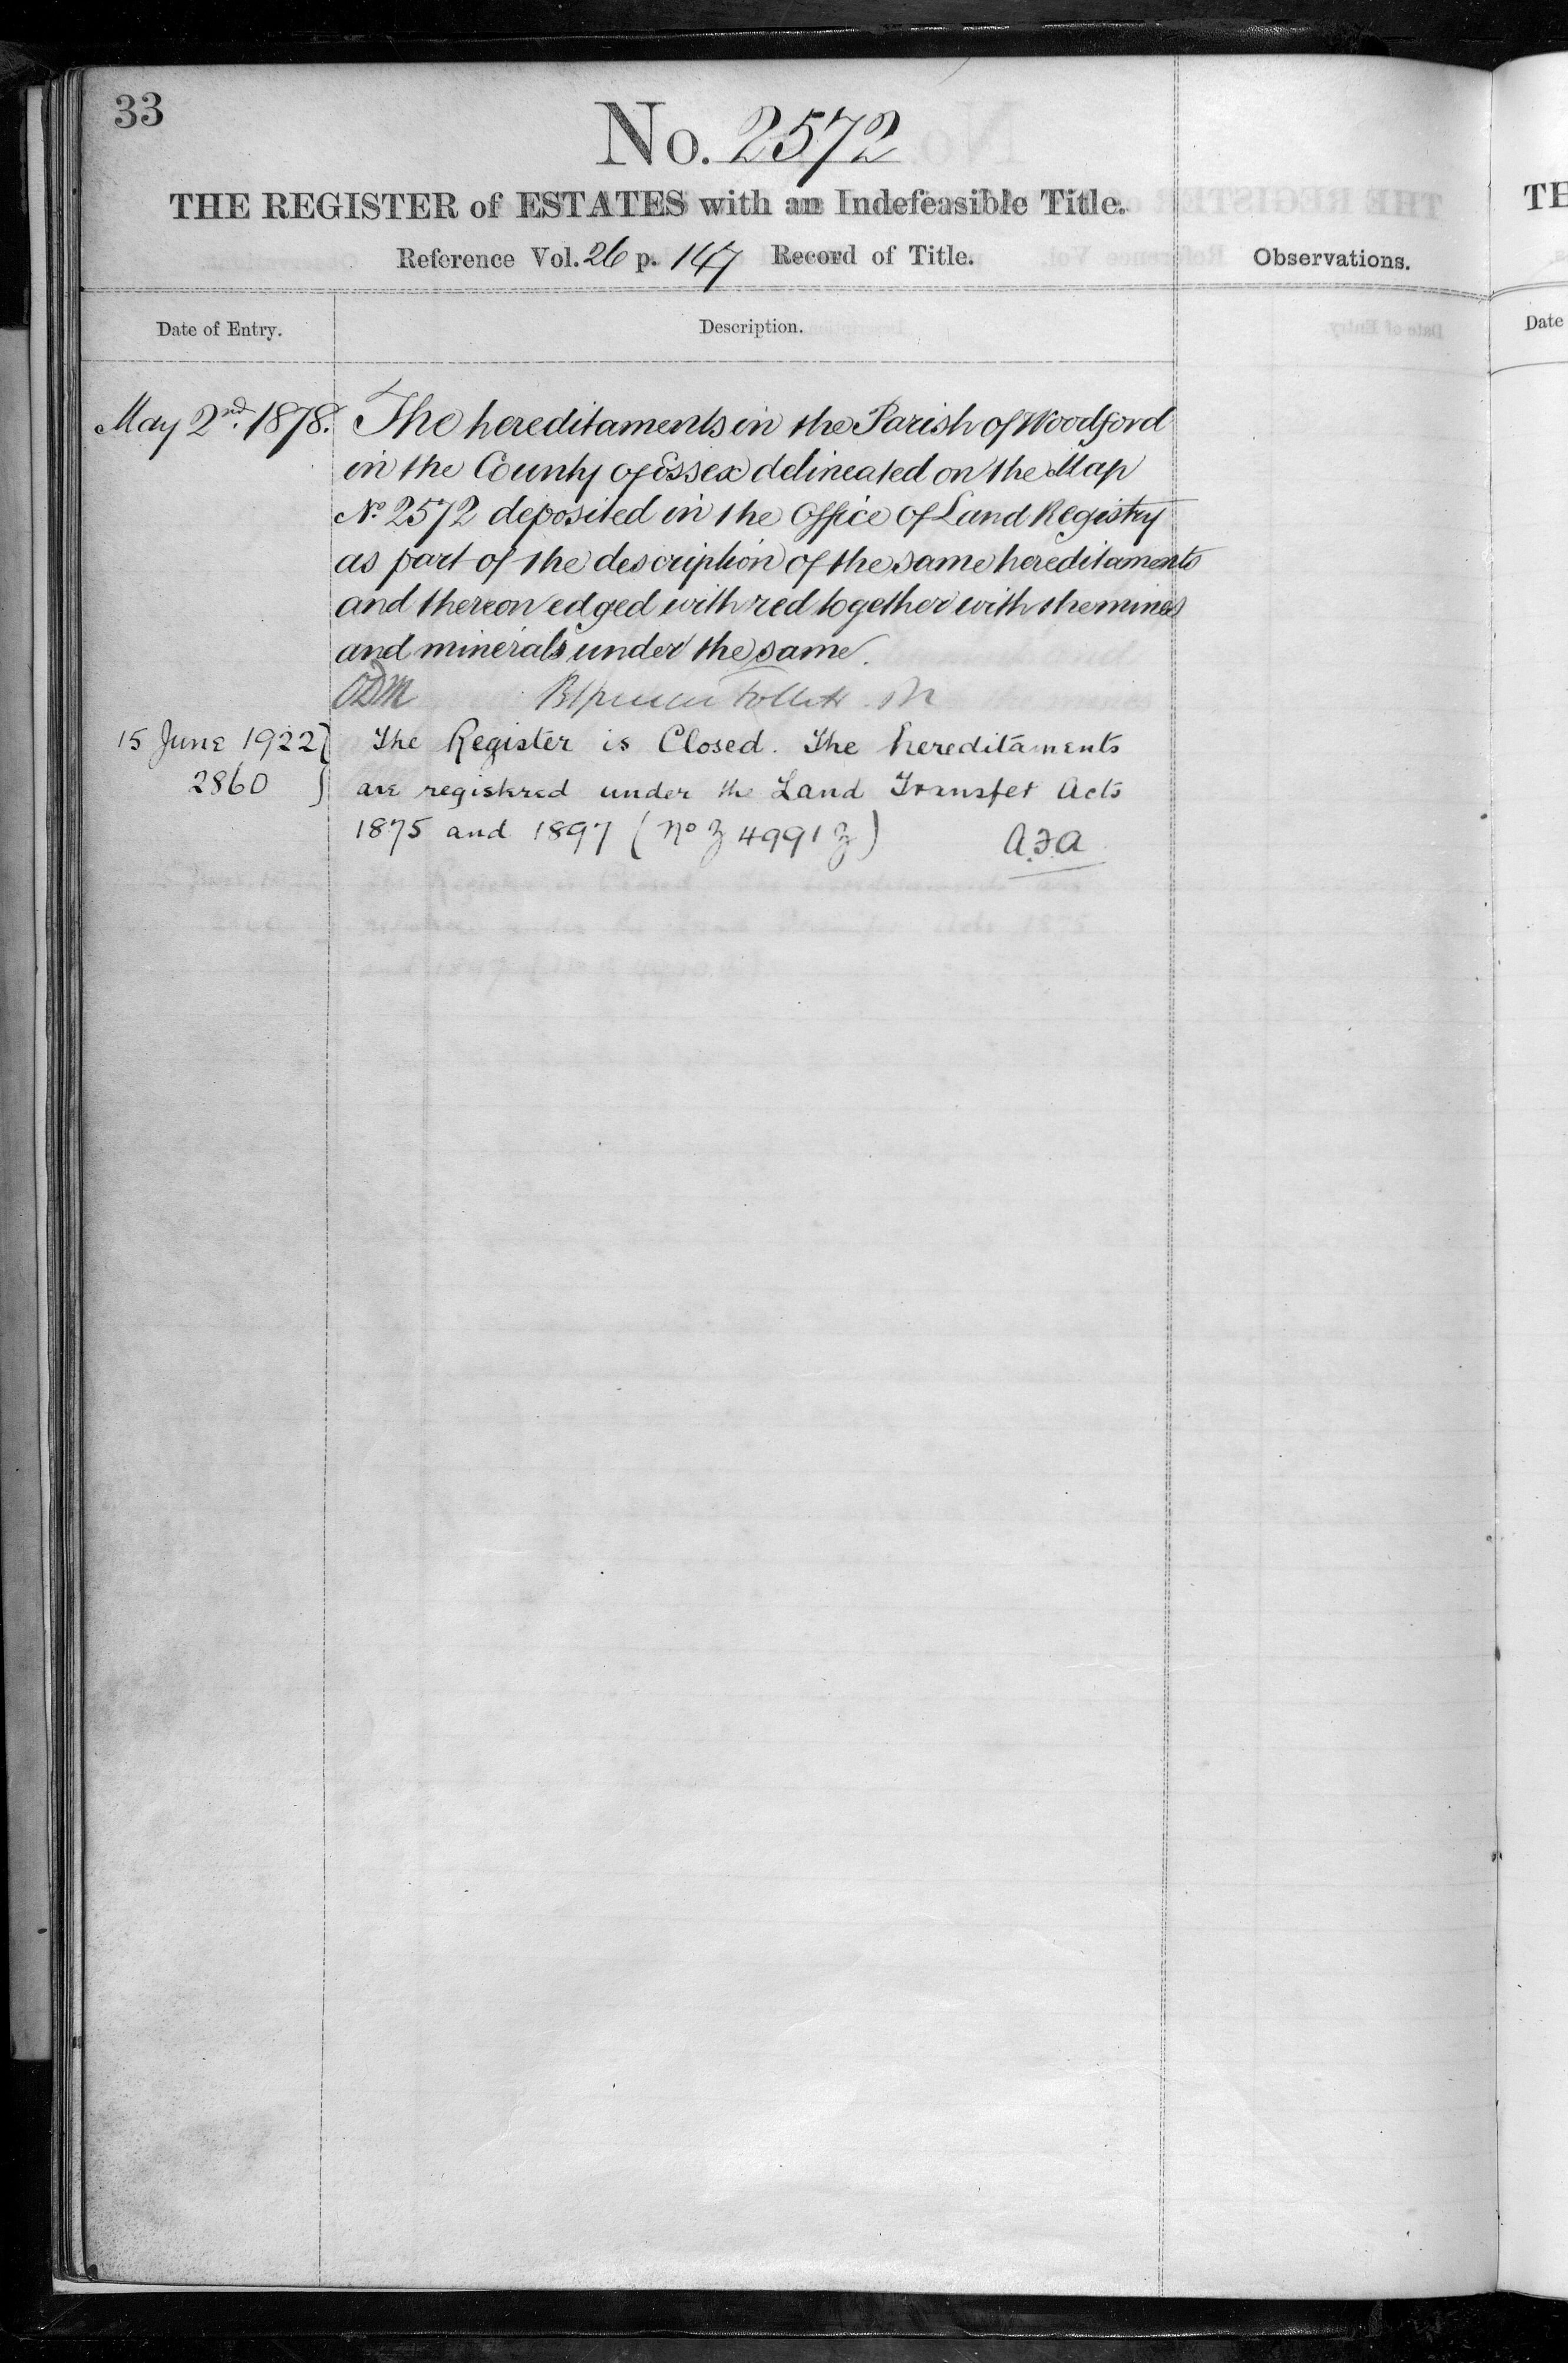 33
No. 2572
THE REGISTER of ESTATES with an Indefeasible Title.
Reference Vol. 26 p. 147 Record of Title.
Observations.
Date of Entry.
Description.
May 2nd. 1878.
The hereditaments in the Parish of Woodford
in the County of Essex delineated on the Map
No. 2572 deposited in the Office of Land Registry
as part of the description of the same hereditaments
and thereon edged with red together with the mines
and minerals under the same.
15 June 1922
2860
The Register is Closed. The hereditaments
are registered under the Land Transfer Acts
1875 and 1897 (No Z 4991 Z)
TE
Date